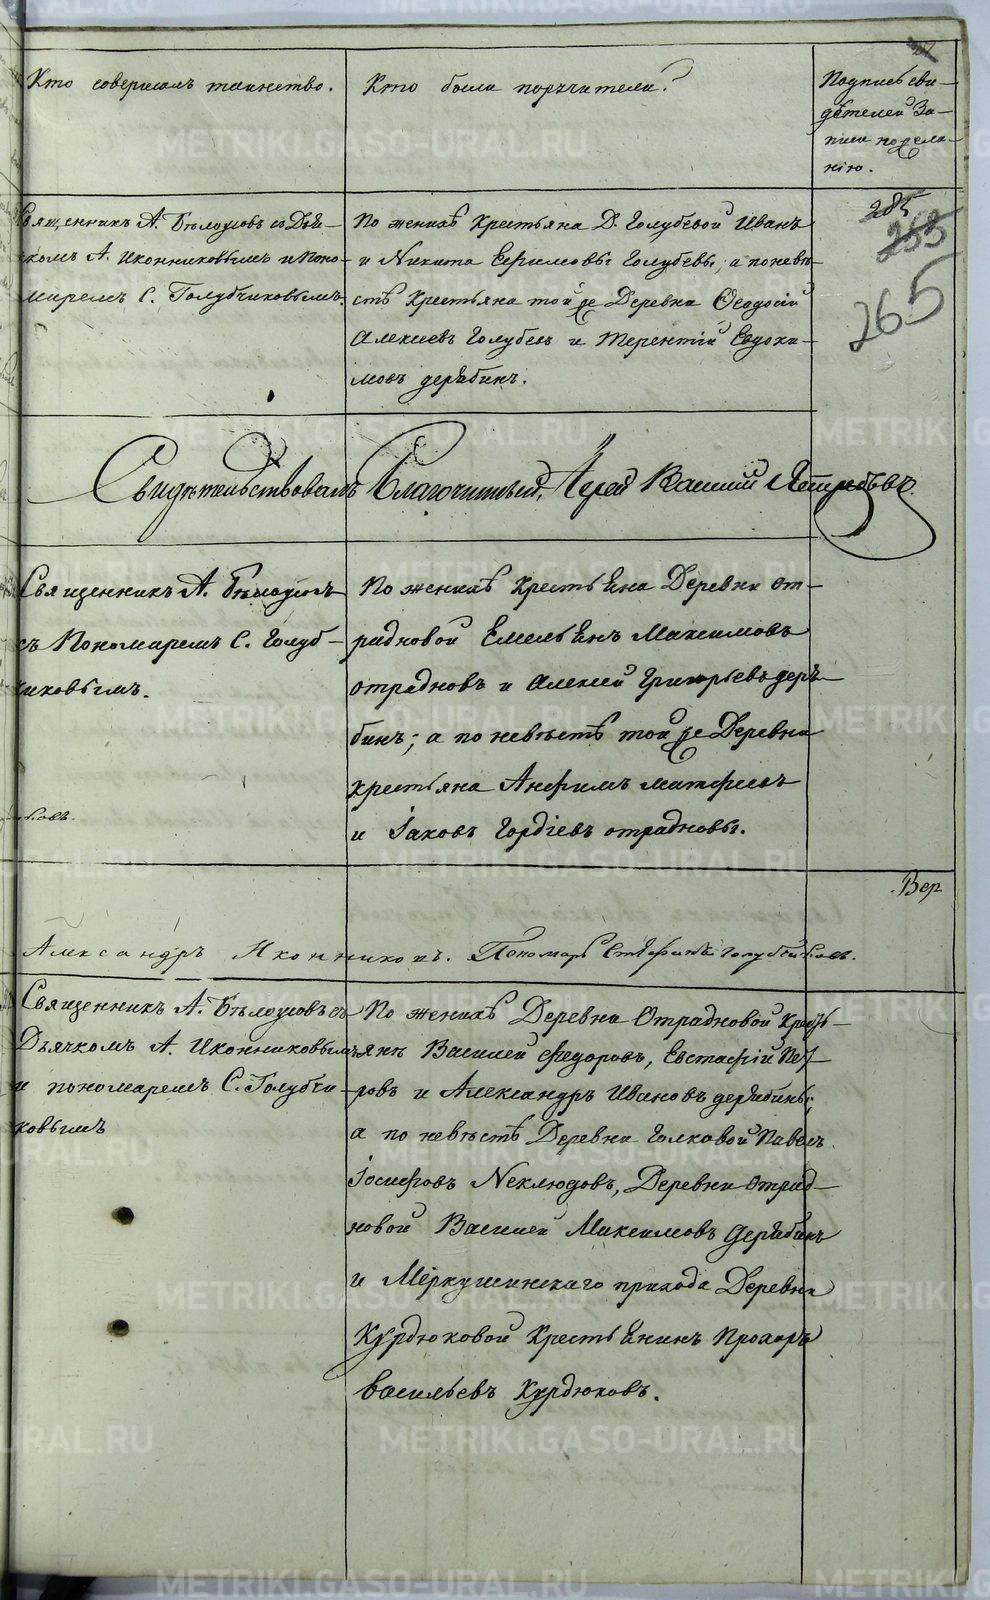 Кто совершалъ таинство.
Кто были поручители?
Подпись сви-
дѣтелей За-
писи по жела-
нію.
Священникъ А. Бѣлоусовъ съ Дья-
чкомъ А. Иконниковымъ и Поно-
маремъ С. Голубчиковымъ.
По женихѣ Крестьяна Д. Голубевой Иванъ
и Никита Ефимовы Голубевы, а по невѣ-
стѣ Крестьяна той же Деревни Ѳеодосій
Алексѣевъ Голубевъ и Терентій Евдоки-
мовъ дерябинъ.
285
253
265
Свидѣтельствовалъ Благочинный, Іерей
Священникъ А. Бѣлоусовъ
съ Пономаремъ С. Голуб-
чиковымъ.
По женихѣ Крестьяна Деревни от-
радновой Емельянъ Максимовъ
отрадновъ и Алексей Григорьевъ деря-
бинъ; а по невѣстѣ той же Деревни
крестьяна Анфимъ матфеевъ
и Іаковъ Гордіевъ отрадновы.
Вер
Александръ Иконниковъ. Пономарь Стефанъ Голубчиковъ.
Священникъ А. Бѣлоусовъ съ
Дьячкомъ А. Иконниковымъ
и пономаремъ С. Голубчи-
ковымъ
По женихѣ Деревни Отрадновой Кресть-
янѣ Василей Федоровъ, Евстафій Пет-
ровъ и Александръ Ивановъ дерябины;
а по невѣстѣ Деревни Голковой Павелъ
Іосифовъ Неклюдовъ, Деревни отрад-
новой Василей Максимовъ Дерябинъ
и Меркушинскаго прихода Деревни
Курдюковой Крестьянинъ Прохоръ
васильевъ Курдюковъ.
METRIKI.GASO-URAL.RU